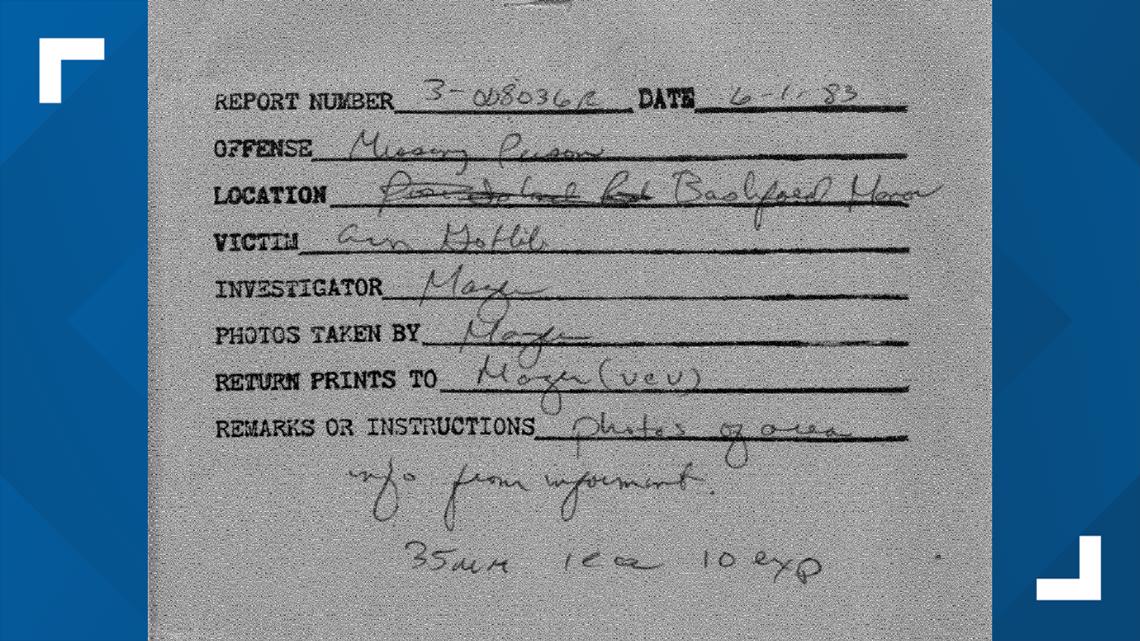 REPORT NUMBER 3-008036R DATE 6-1-83
OFFENSE Missing Person
LOCATION Bashford Manor
VICTIM Ann Gotlib
INVESTIGATOR Mayer
PHOTOS TAKEN BY Mayer
RETURN PRINTS TO Mayer (VCU)
REMARKS OR INSTRUCTIONS photos of area
info from informant.
35mm 1 ea 10 exp